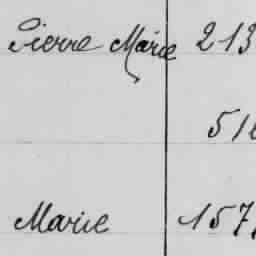 Pierre Marie 213
51
Marie 157